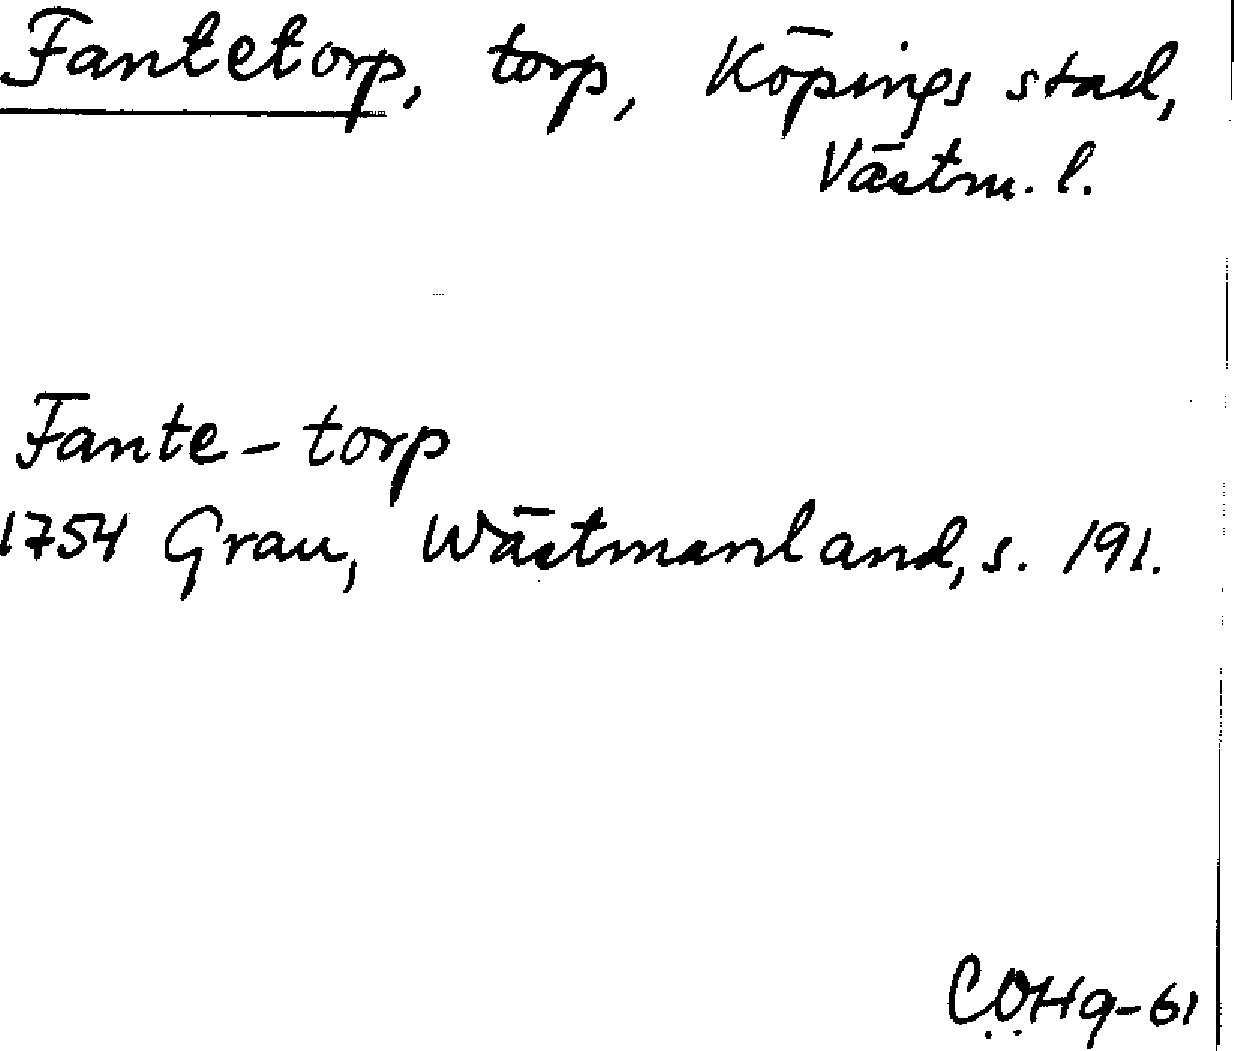 Fantetorp, torp, Köpings stad,
Västm. l.
Fante-torp
1754 Grau, Wästmanland, s. 191.
COHg-61